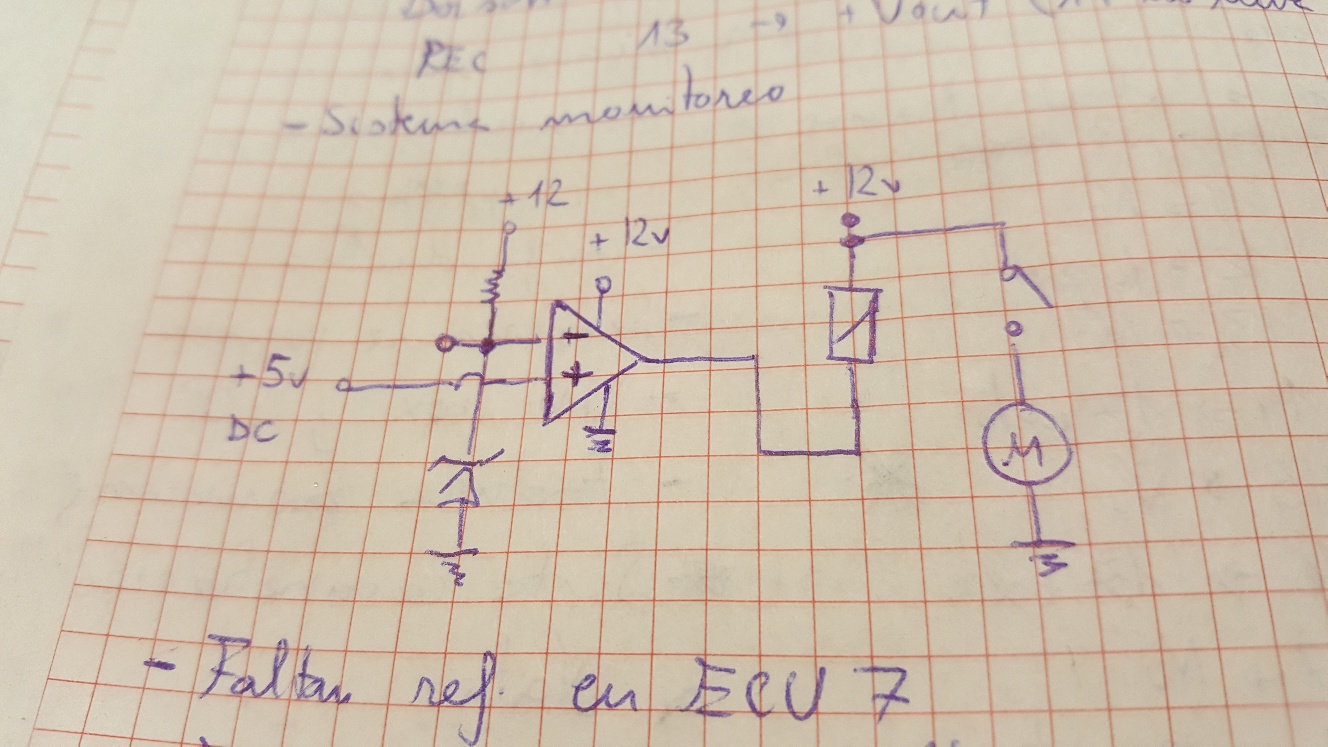 REC
13 → + Vout
- Sistema monitoreo
+12
+12v
+12v
+5v
DC
-
+
M
- Faltan ref. en ECU 7